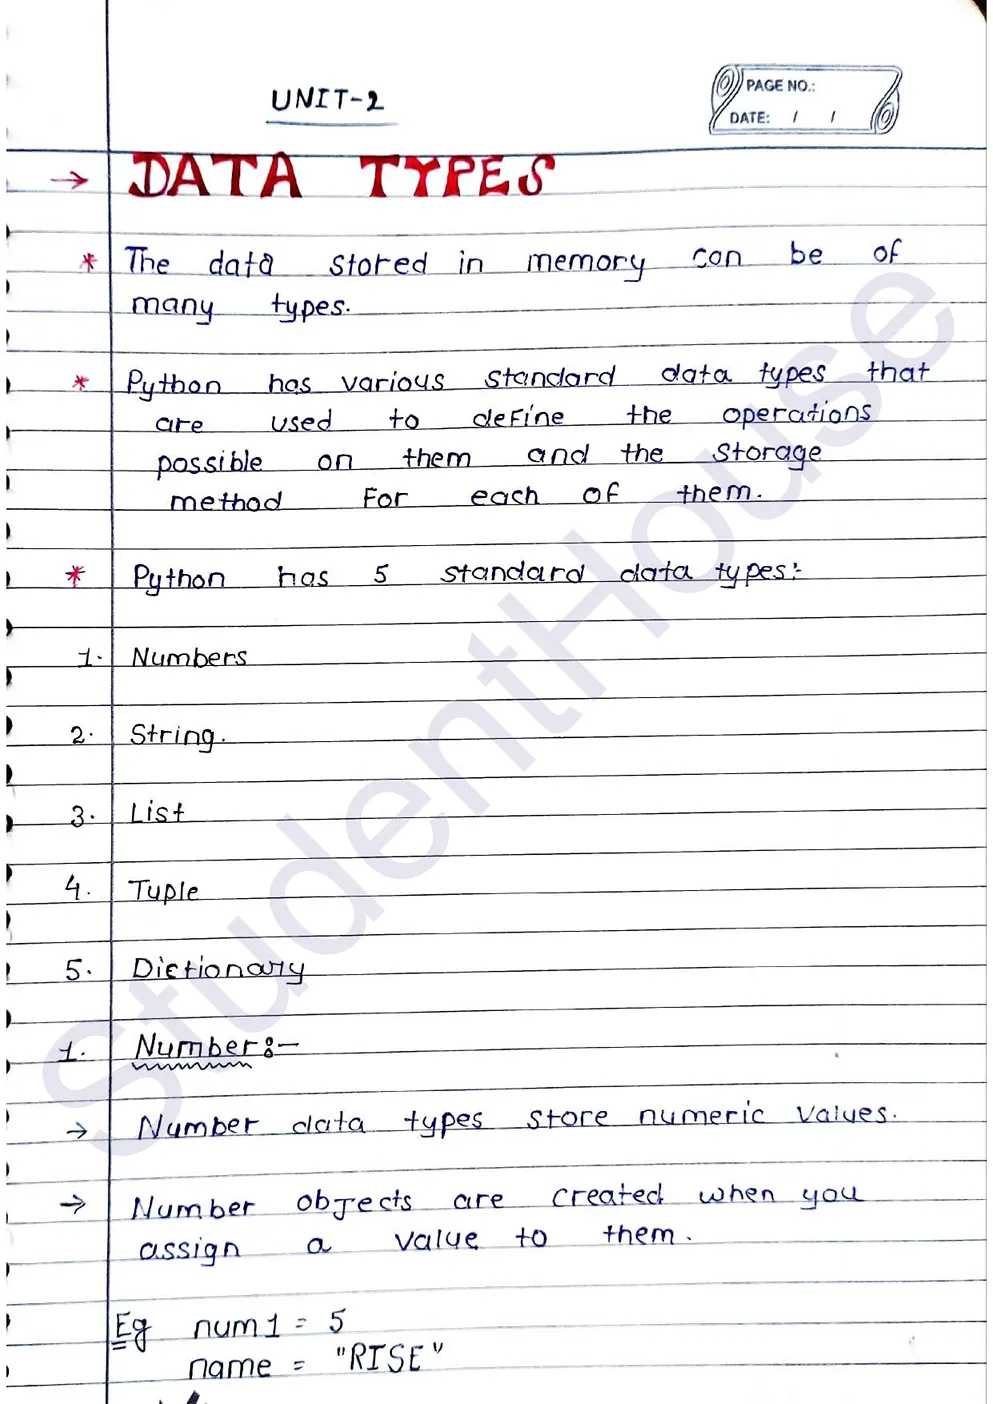 UNIT-2
PAGE NO.:
DATE: / /
→ DATA TYPES
* The data stored in memory can be of
many types.
* Python has various standard data types that
are used to define the operations
possible on them and the storage
method for each of them.
* Python has 5 standard data types:-
1. Numbers
2. String.
3. List
4. Tuple
5. Dictionary
1. Number:-
→ Number data types store numeric values.
→ Number objects are created when you
assign a value to them.
Eg num1 = 5
name = "RISE"
StudentHouse